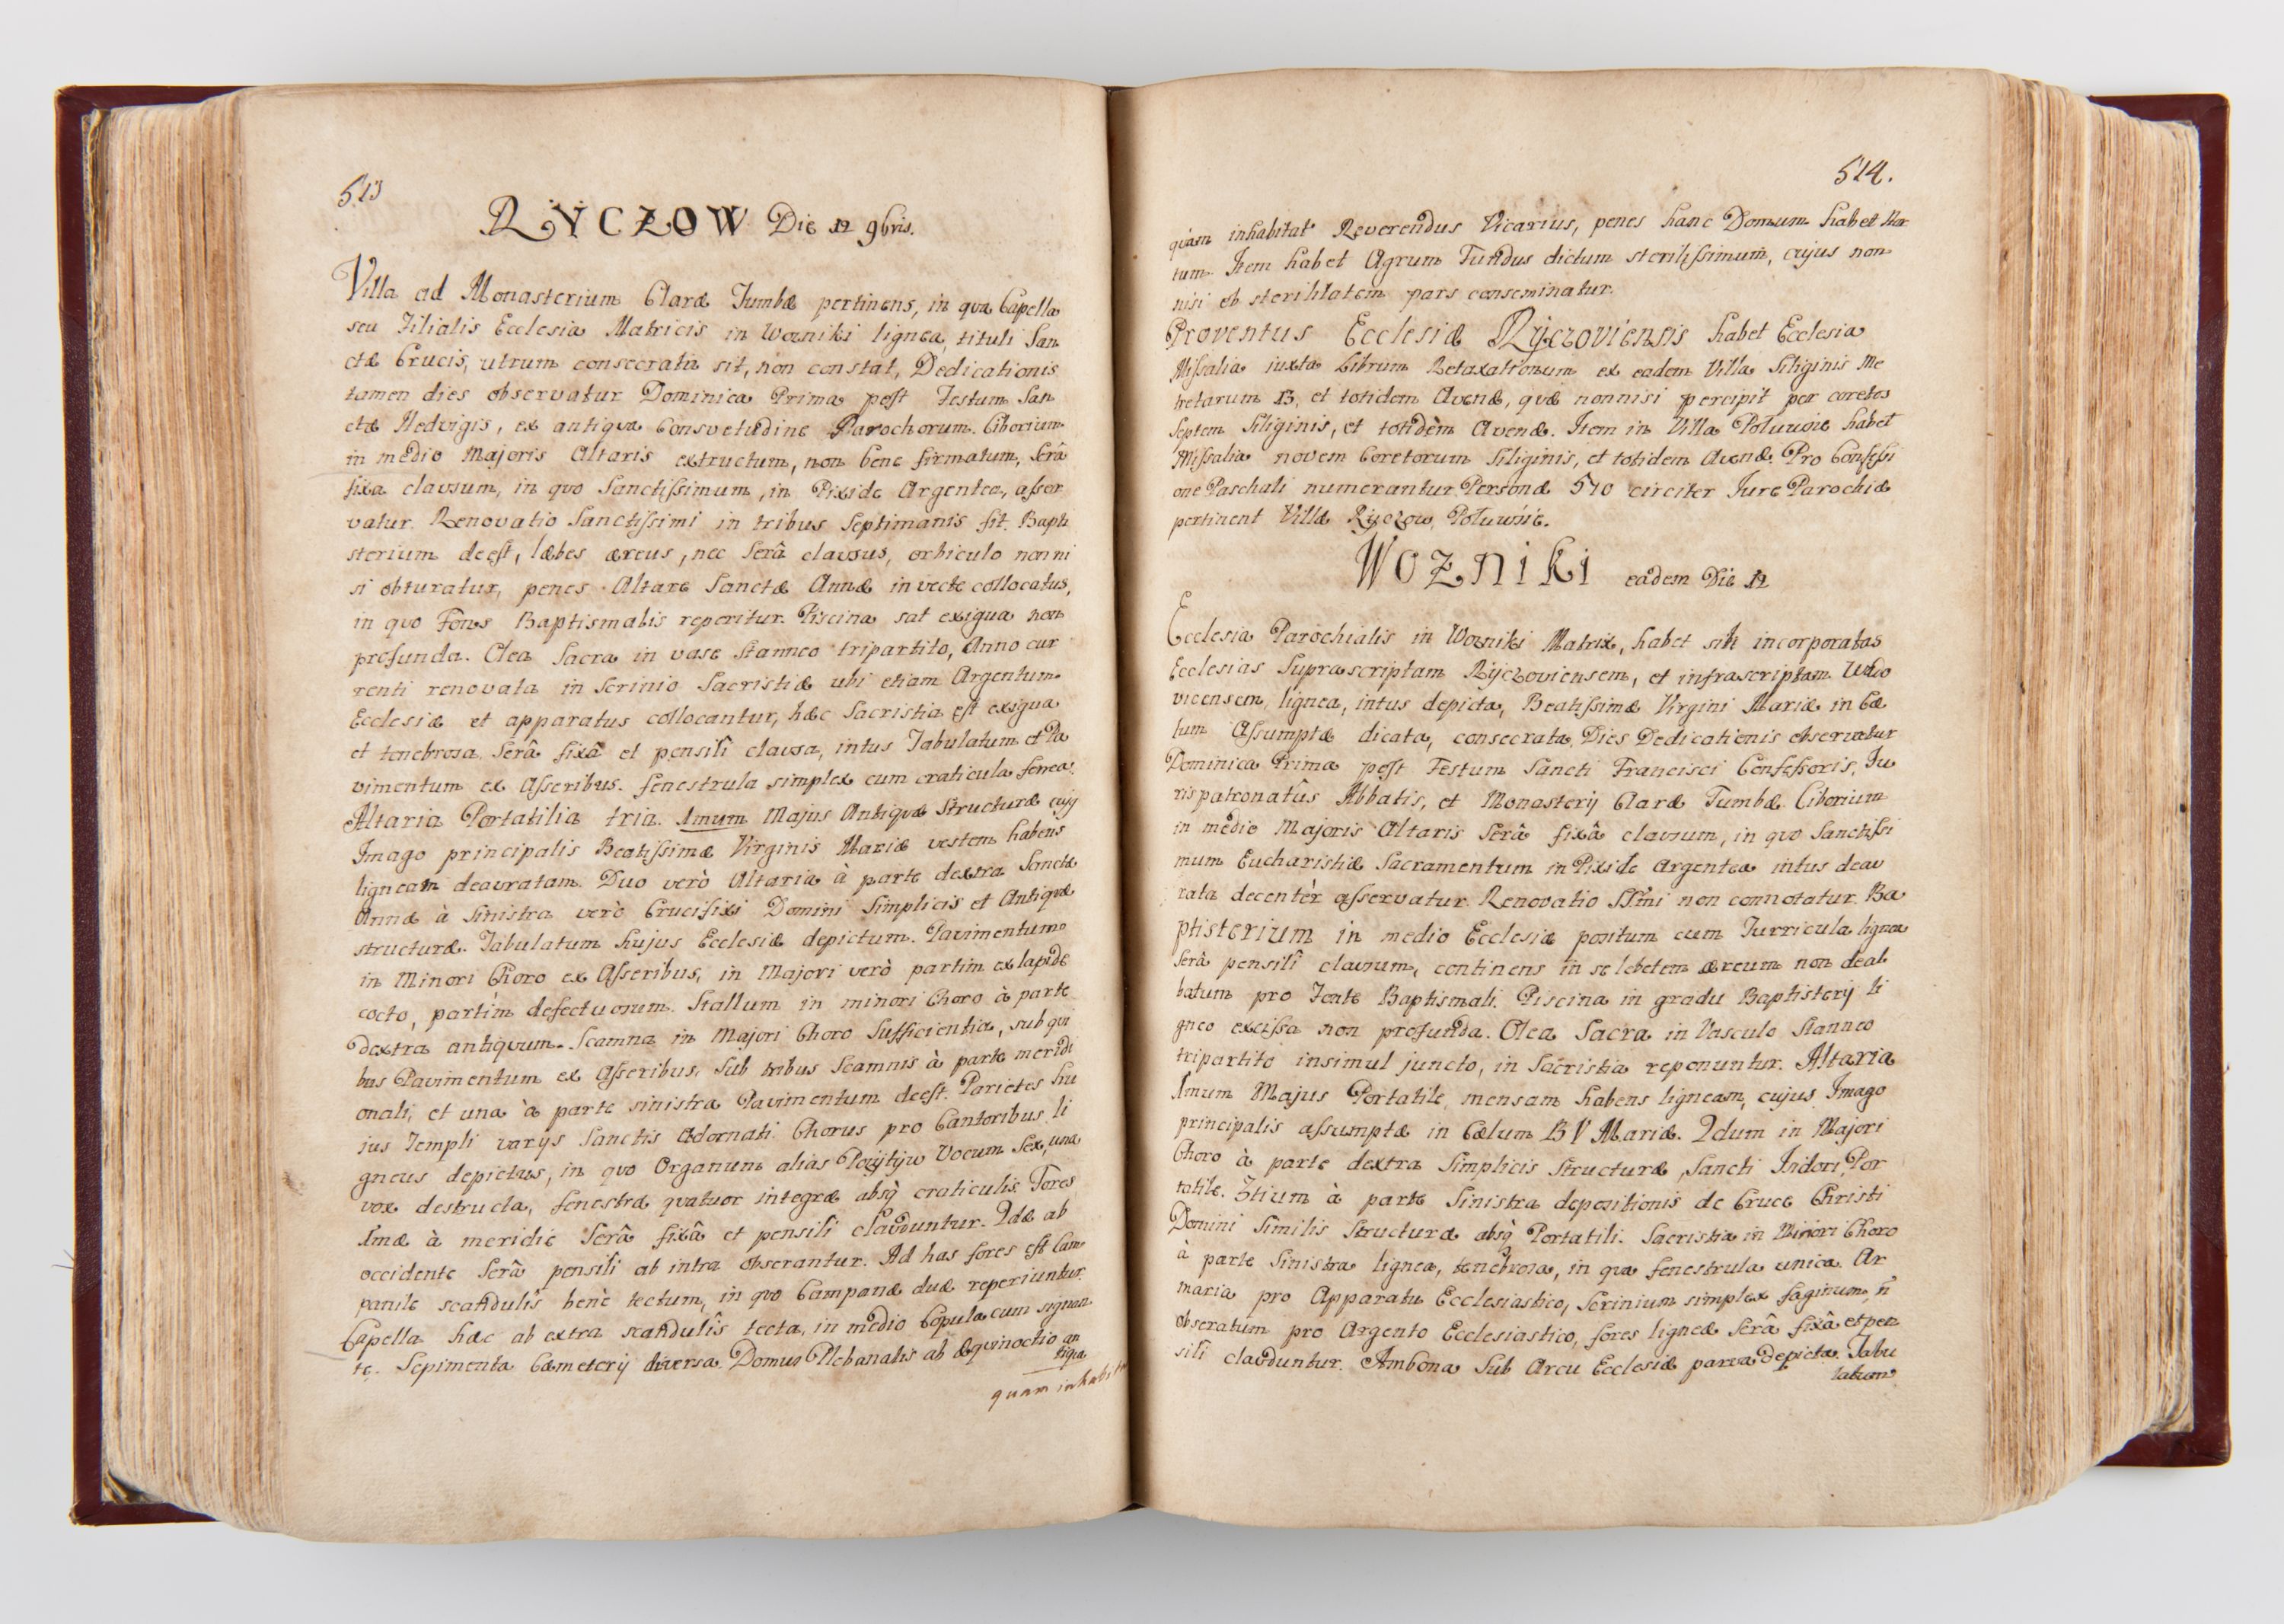 513
RYCZOW Die 12 9bris.
Villa ad Monasterium Claræ Tumbæ pertinens, in qva Capella
seu Filialis Ecclesia Matricis in Wozniki lignea, tituli San
ctæ Crucis, utrum consecrata sit, non constat, Dedicationis
tamen dies observatur Dominica Prima post Festum San
ctæ Hedvigis, ex antiqva Consvetudine Parochorum. Ciborium
in medio Majoris Altaris extructum, non bene firmatum, Serâ
fixa clausum, in qvo Sanctissimum, in Pixide Argentea, asser
vatur. Renovatio Sanctissimi in tribus Septimanis fit. Bapti
sterium deest, læbes æreus, nec Serâ clausus, orbiculo nonni
si obturatur, penes Altare Sanctæ Annæ in vecte collocatus,
in quo Fons Baptismalis reperitur. Piscina sat exigua non
profunda. Olea Sacra in vase Stanneo tripartito, Anno cur
renti renovata in Scrinio Sacristiæ ubi etiam Argentum
Ecclesiæ et apparatus collocantur, hæc Sacristia est exigua
et tenebrosa, Serâ fixâ et pensili clausa, intus Tabulatum et Pa
vimentum ex Asseribus. fenestrula simplex cum craticula ferrea.
Altaria Portatilia tria. 1mum Majus Antiqvæ Structuræ cujg
Imago principalis Beatissimæ Virginis Mariæ vestem habens
ligneam deauratam. Duo verò Altaria à parte dextra Sanctæ
Annæ à Sinistra verò Crucifixi Domini Simplicis et Antiqvæ
structuræ. Tabulatum hujus Ecclesiæ depictum. Pavimentum
in Minori Choro ex Asseribus, in Majori verò partim ex lapide
cocto, partim defectuosum. Stallum in minori Choro à parte
Dextra antiqvum. Scamna in Majori Choro Sufficientia, sub qvi
bus Pavimentum ex Asseribus, Sub tribus Scamnis à parte meridi
onali, et una à parte sinistra Pavimentum deest. Parietes hu
jus Templi varijs Sanctis adornati. Chorus pro Cantoribus li
gneus depictus, in qvo Organum alias Pozÿtÿw Vocum Sex, una
vox destructa, fenestræ qvatuor integræ absq craticulis. Fores
1mæ à meridie Serâ fixâ et pensili clauduntur. 2dæ ab
occidente Serâ pensili ab intra obserantur. Ad has fores est Cam
panile scandulis benè tectum, in qvo Campanæ duæ reperiuntur.
Capella hæc ab extra scandulis tecta, in medio Copula cum signan
te. Sepimenta Cæmeterij diversa. Domus Plebanalis ab Æqvinoctio an
tiqua
quam inhabita
514.
qvam inhabitat Reverendus Vicarius, penes hanc Domum habet Hor
tum. Item habet Agrum Fundus dictum sterilissimum, cujus non
nisi ob sterilitatem pars conseminatur.
Proventus Ecclesiæ Rÿczoviensis habet Ecclesia
Missalia iuxta Librum Retaxationum ex eadem Villa Siliginis Me
tretarum 13, et totidem Avenæ, quæ nonnisi percipit per coretos
Septem Siliginis, et totidèm Avenæ. Item in Villa Poluwsie habet
Missalia novem Coretorum Siliginis, et totidem Avenæ. Pro Confessi
one Paschali numerantur Personæ 570 circiter Jure Parochiæ
pertinent Villæ Ryczow, Poluwsie.
WOZNIKI eadem Die 12
Ecclesia Parochialis in Wozniki Matrix, habet sibi incorporatas
Ecclesias Suprascriptam Rÿczoviensem, et infrascriptam Wado
vicensem, lignea, intus depicta, Beatissimæ Virgini Mariæ in Cæ
lum Assumptæ dicata, consecrata, Dies Dedicationis observatur
Dominica Prima post Festum Sancti Francisci Confessoris, Ju
rispatronatûs Abbatis, et Monasterij Claræ Tumbæ. Ciborium
in medio Majoris Altaris Serâ fixâ clausum, in qvo Sanctissi
mum Eucharistiæ Sacramentum in Pixide Argentea intus deau
rata decentèr asservatur. Renovatio SSmi non connotatur. Ba
ptisterium in medio Ecclesiæ positum cum Turricula lignea
Serâ pensili clausum, continens in se lebetem æreum non deal
batum pro Fonte Baptismali. Piscina in gradu Baptisterij li
gneo excissa non profunda. Olea Sacra in Vasculo Stanneo
tripartito insimul juncto, in Sacristia reponuntur. Altaria
1mum Majus Portatile, mensam habens ligneam, cujus Imago
principalis assumptæ in Cælum B V Mariæ. 2dum in Majori
Choro à parte dextra Simplicis Structuræ, Sancti Isidori, Por
tatile. 3tium à parte Sinistra depositionis de Cruce Christi
Domini Similis Structuræ absq Portatili. Sacristia in Minori Choro
à parte Sinistra lignea, tenebrosa, in qva fenestrula unica. Ar
maria pro Apparatu Ecclesiastico, Scrinium simplex faginum, n̄
obseratum pro Argento Ecclesiastico, fores ligneæ Serâ fixâ et pen
sili clauduntur. Ambona Sub Arcu Ecclesiæ parva depicta. Tabu
latum